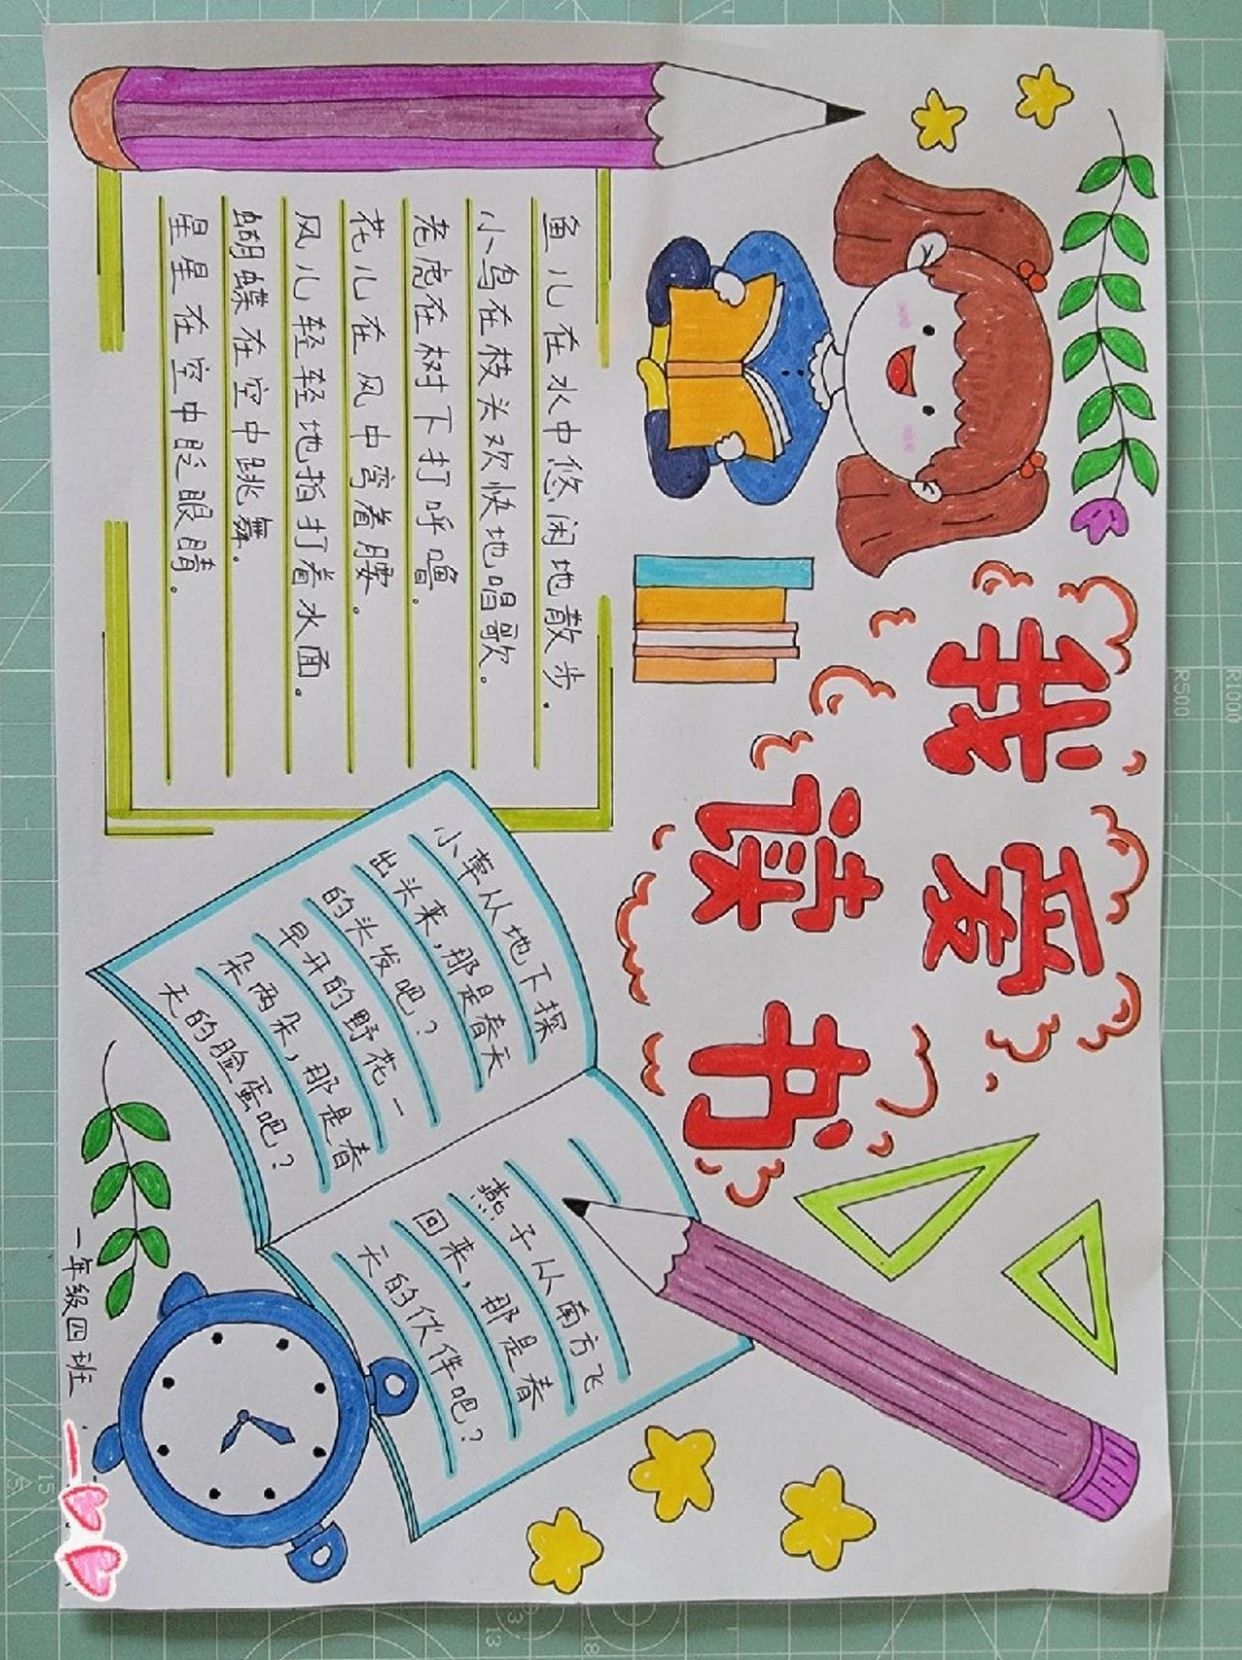 我爱
读书
鱼儿在水中悠闲地散步.
小鸟在枝头欢快地唱歌.
老虎在树下打呼噜.
花儿在风中弯着腰.
风儿轻轻地指打着水面.
蝴蝶在空中跳舞.
星星在空中眨眼睛.
小草从地下探
出头来,那是春天
的头发吧?
早开的野花一
朵两朵,那是春
天的脸蛋吧?
燕子从南方飞
回来,那是春
天的伙伴吧?
一年级四班
R500
R1000
15
13
18